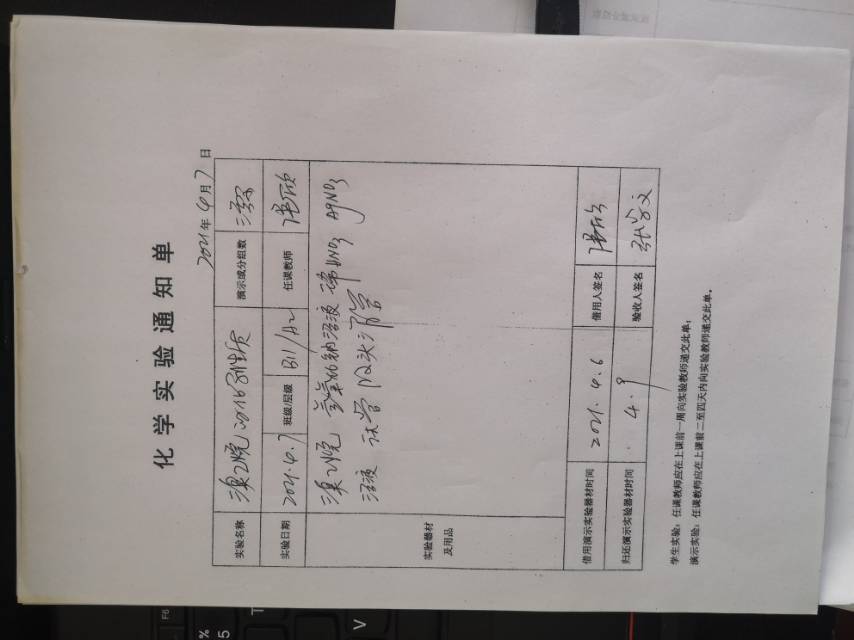 化学实验通知单
2021年4月7日
实验名称 溴乙烷的化学性质 演示或分组数 演示
实验日期 2021.4.7 班级/层级 B11/A2 任课教师
实验器材及用品
溴乙烷 氢氧化钠溶液 稀HNO3 AgNO3
溶液 试管 胶头滴管
借用演示实验器材时间 2021.4.6 借用人签名
归还演示实验器材时间 4.9 验收人签名
学生实验:任课教师应在上课前一周向实验教师递交此单;
演示实验:任课教师应在上课前二至四天内向实验教师递交此单。
F6
%
5
T
V